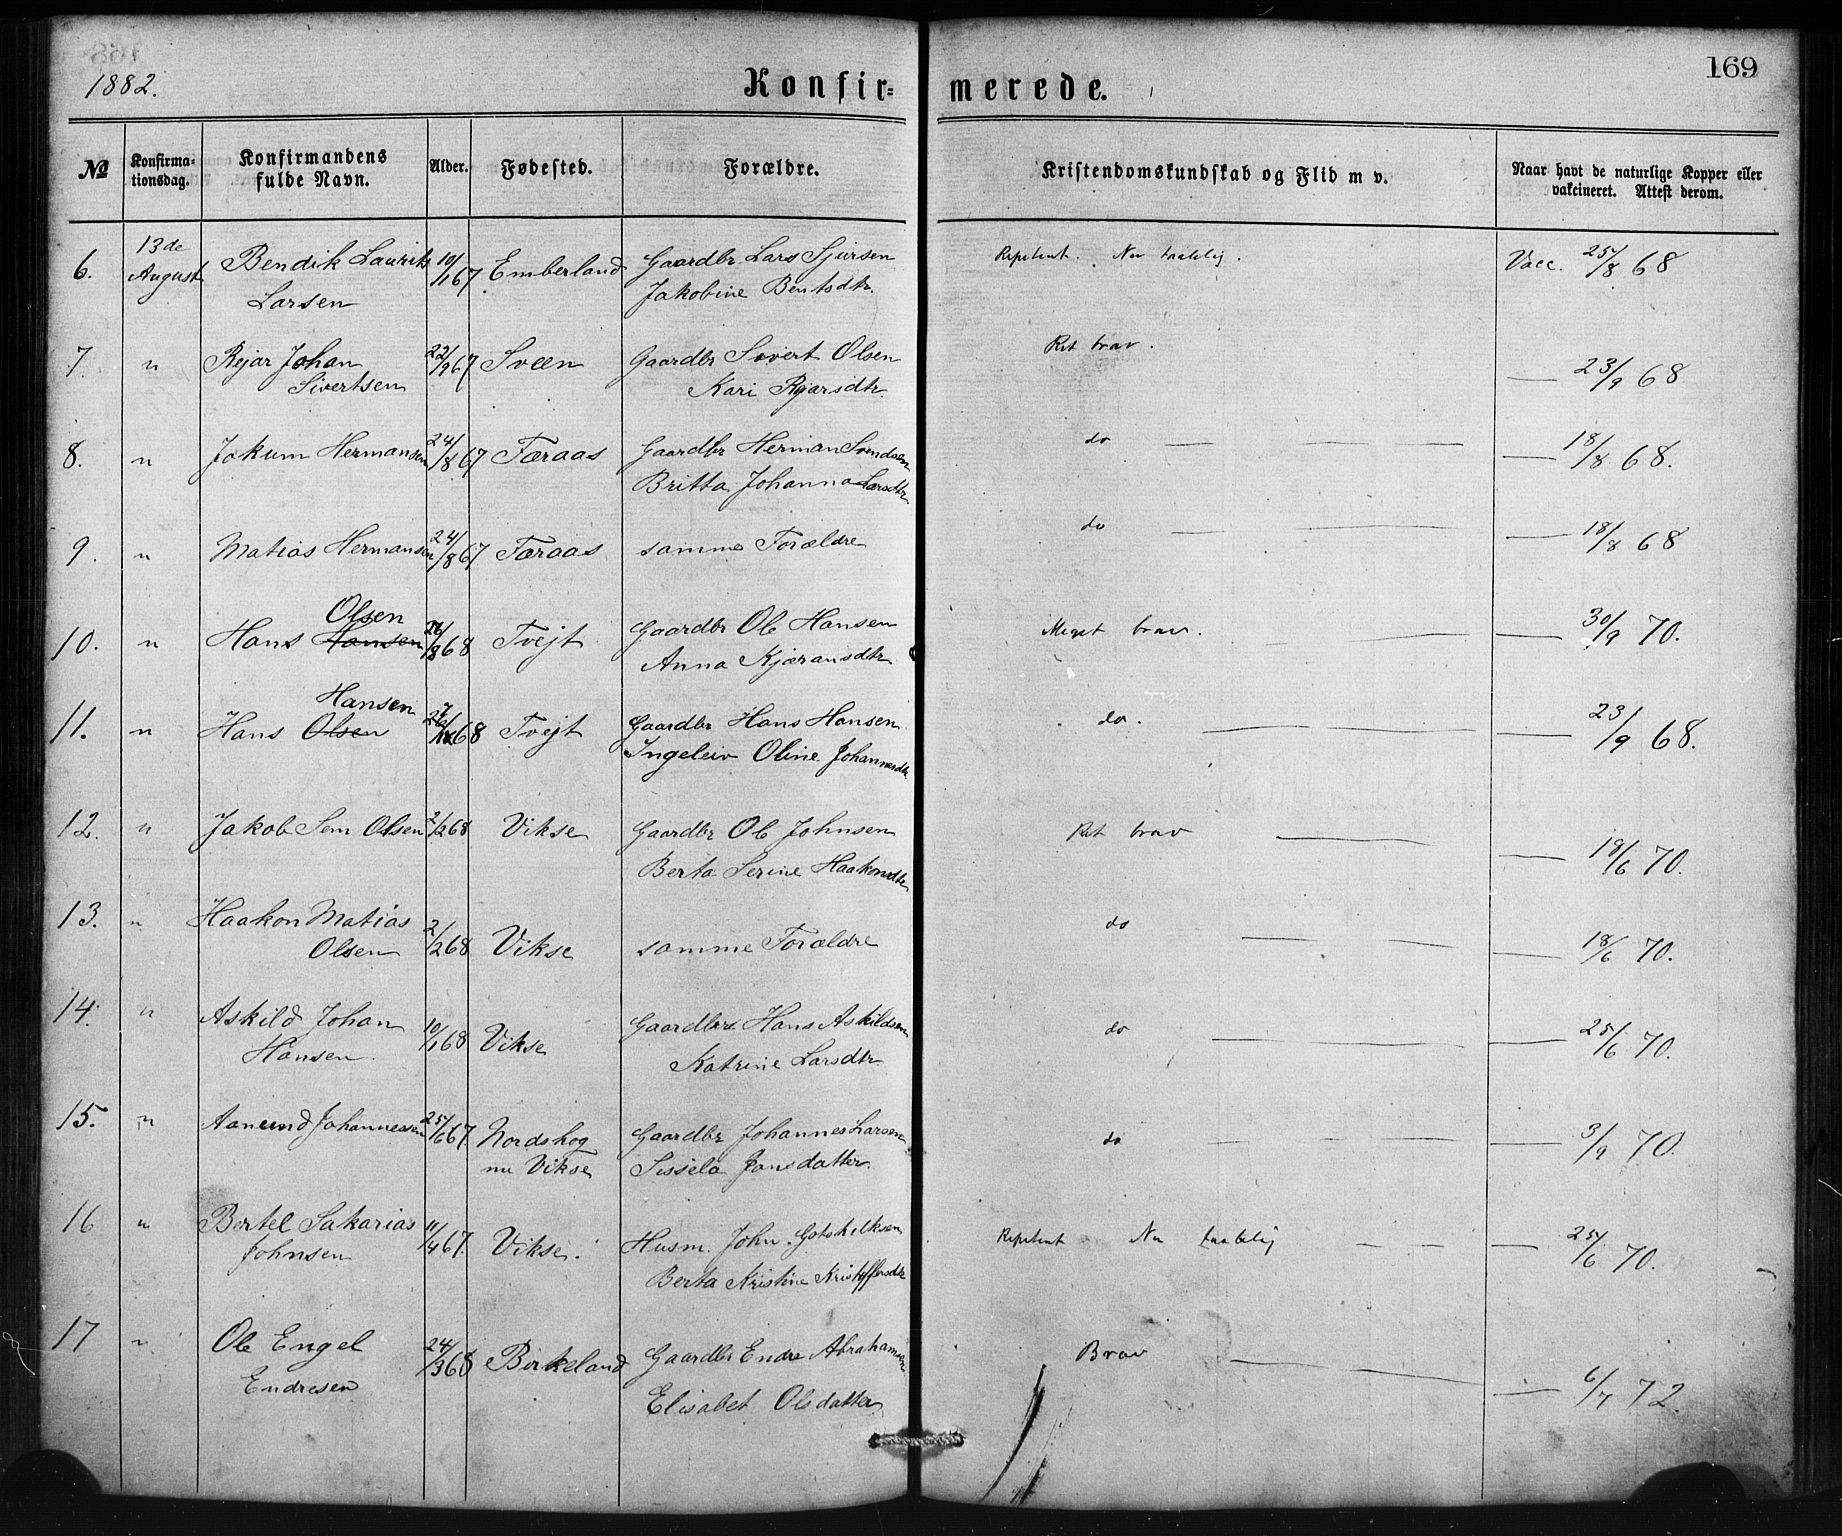 1882.
Konfirmerede.
169
No
Konfirma-
tionsdag.
Konfirmandens
fulde Navn.
Alder.
Fødested.
Forældre.
Kristendomskundskab og Flid m v.
Naar havt de naturlige Kopper eller
vakcineret. Attest derom.
6. 13de August Bendik Laurits 10/1 67 Emberland Gaardbr Lars Sjursen Repetent. Nu taalelig. Vacc. 25/8 68
Larsen Jakobine Bentsdtr.
7. " Rejar Johan 22/9 67 Sveen Gaardbr Sivert Olsen Ret brav. — 23/9 68
Sivertsen Kari Rejarsdtr.
8. " Jokum Hermansen 24/8 67 Færaas Gaardbr Herman Svendsen do — — — 18/8 68.
Britta Johanna Larsdtr.
9. " Matias Hermansen 24/8 67 Færaas samme Forældre do — — — 18/8 68
Olsen
10. " Hans Hansen /8 68 Tvejt Gaardbr Ole Hansen Meget brav. — — 30/9 70.
Anna Kjæransdtr
Hansen
11. " Hans Olsen 68 Tvejt Gaardbr Hans Hansen do. — — 23/9 68.
Ingeleiv Oline Johannesdtr
12. " Jakob Sem Olsen 2/2 68 Vikse Gaardbr Ole Johnsen Ret brav — — 18/6 70.
Berta Serine Haakonsdtr
13. " Haakon Matias 2/2 68 Vikse samme Forældre do — — — 18/6 70.
Olsen
14. " Askild Johan 10/1 68 Vikse Gaardbr. Hans Askildsen do — — — 25/6 70.
Hansen. Katrine Larsdtr.
15. " Aanund Johannessen 25/6 67. Nordskog Gaardbr Johannes Larsen do — — — — 3/9 70.
nu Vikse Sissela Jansdatter.
16 " Bertel Sakarias 11/4 67. Vikse. Husm. John Gotskalksen Repetent Nu taalelig — — — 25/6 70.
Johnsen Berta Kristine Kristoffersdtr
17 " Ole Engel 24/3 68 Birkeland Gaardbr Endre Abrahamsen Brav — — — 6/7 72.
Endresen Elisabet Olsdatter